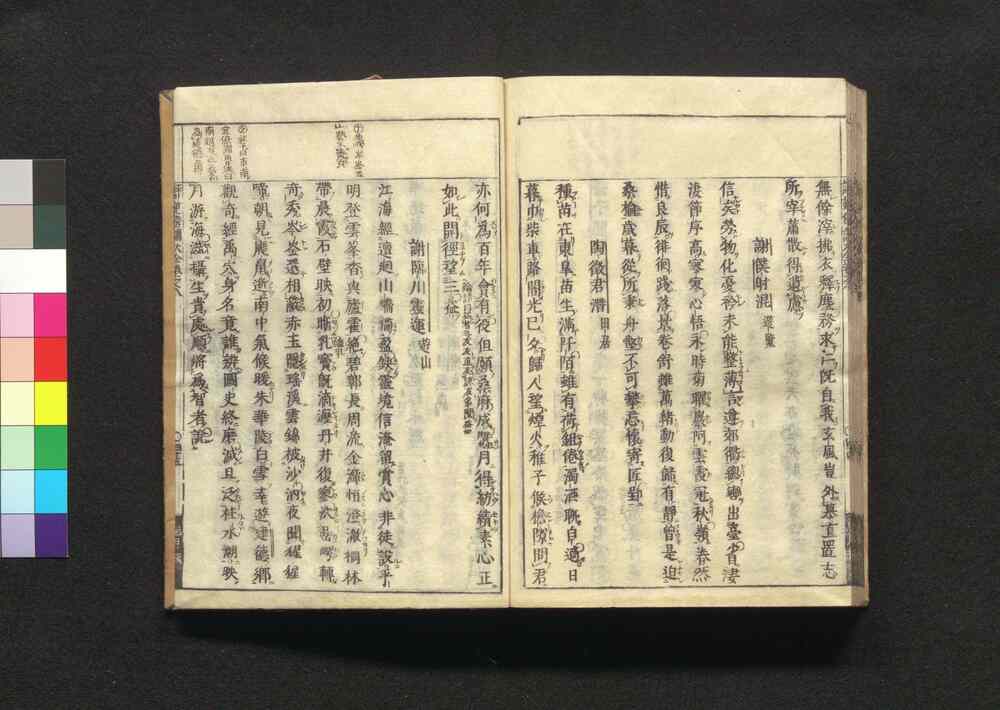 無餘滓拂衣釋塵務求仁既自我玄風豈外慕直置忘
所宰蕭散得遺慮
謝僕射混 遊覽
信矣勞物化憂襟未能整薄言遵郊衢總轡出臺省凄
凄節序高寥寥心悟永時菊耀巖阿雲霞冠秋嶺眷然
惜良辰徘徊踐落景卷舒雖萬緒動復歸有靜曾是迫
桑榆歲暮從所秉舟壑不可攀忘懷寄匠郢
陶徵君潛 田居
種苗在東皐苗生滿阡陌雖有荷鋤倦濁酒聊自適日
暮巾柴車路闇光已夕歸人望煙火稚子候檐隙問君
亦何為百年會有役但願桑麻成蠶月得紡績素心正
如此開徑望三益
謝臨川靈運 遊山
江海經邅迴山嶠備盈缺靈境信淹留賞心非徒設平
明登雲峯杳與廬霍絕碧鄣長周流金潭恒澄澈桐林
帶晨霞石壁映初晣乳竇既滴瀝丹井復寥泬嵒崿轉
奇秀岑崟還相蔽赤玉隱瑤溪雲錦被沙汭夜聞猩猩
啼朝見鼯鼠逝南中氣候暖朱華凌白雪幸遊建德鄉
觀奇經禹穴身名竟誰辨圖史終磨滅且泛桂水潮映
月游海澨攝生貴處順將為智者說